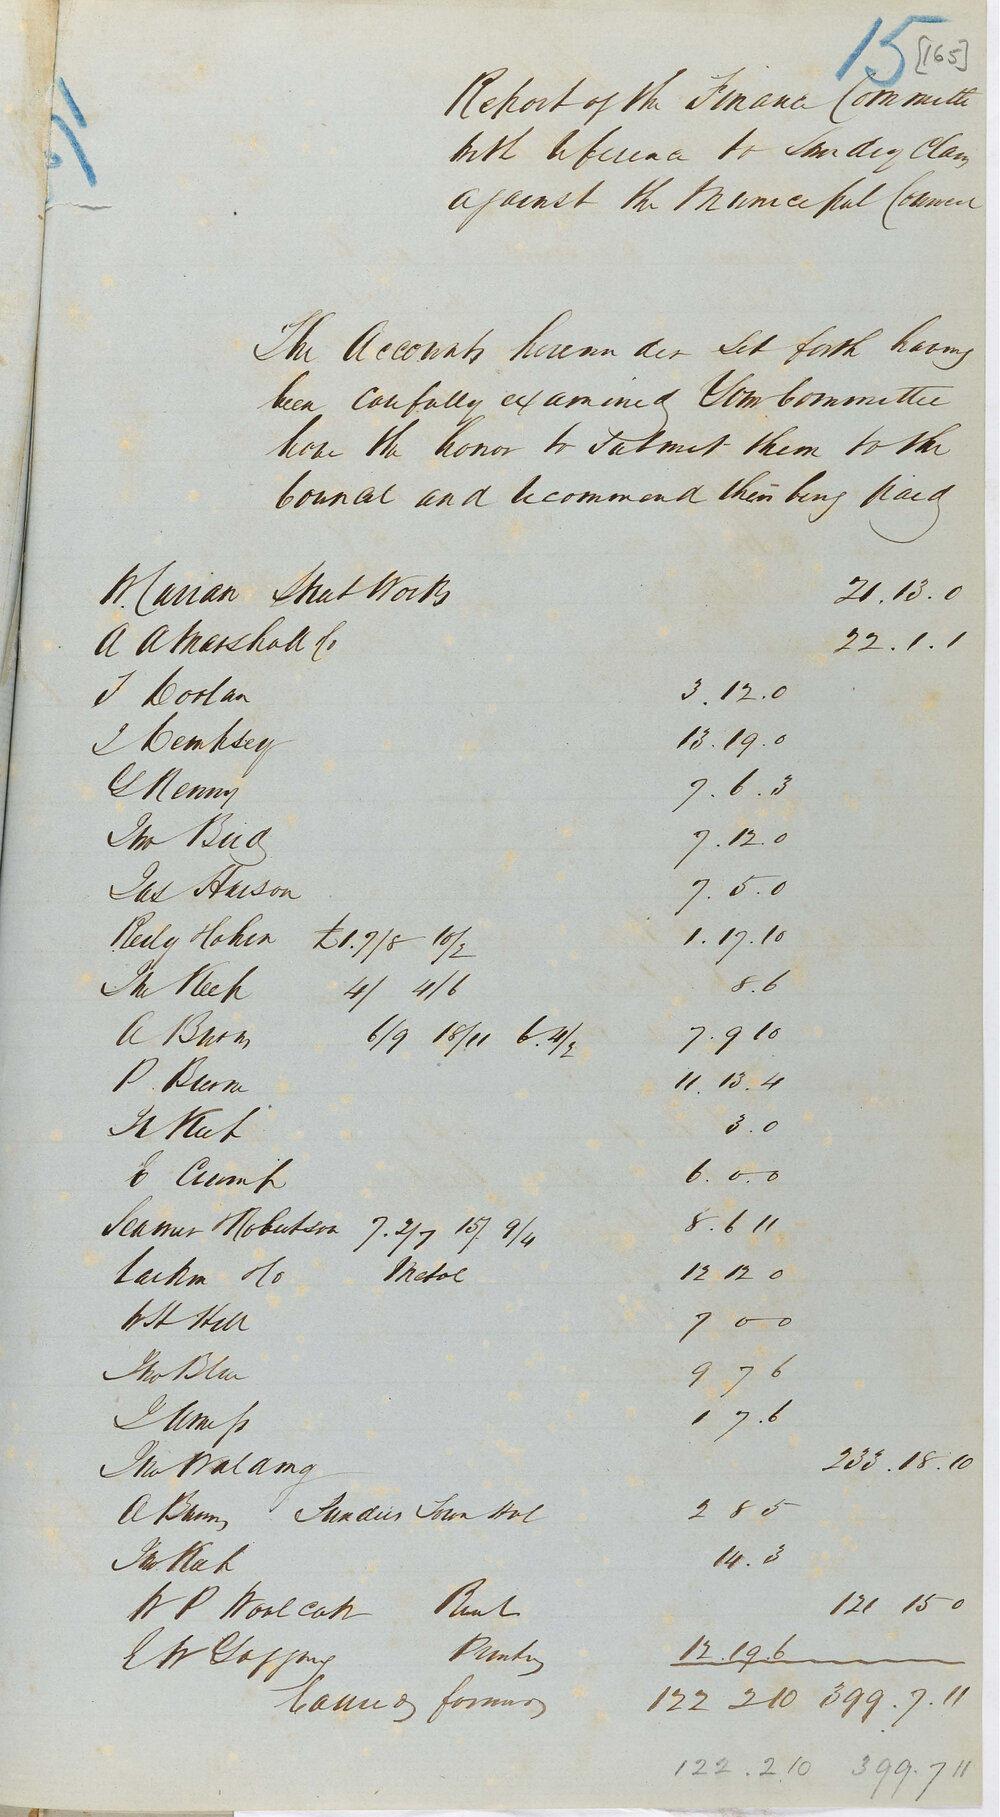 15 [165]
Report of the Finance Committee
with reference to Sundry Claims
against the Municipal Council
The Accounts hereunder set forth having
been carefully examined Your Committee
have the honor to submit them to the
Council and recommend their being paid
W. Street Works 21.13.0
A A Marshall & Co 22.1.1
3.12.0
J Dempsey 13.19.0
G Renny 7.6.3
Jno Bird 7.12.0
Jas 7.5.0
£1.7/8 10/2 1.17.10
Jno Keep 4/ 4/6 8.6
A Burns 6/9 18/11 6.4/2 7.9 10
P. Burne 11.13.4
Keep 3.0
E Crump 6.0.0
Seamer Robertson 7.2/7 15/ 9/4 8.6 11
& Co Metal 12 12 0
W H Hill 7 0 0
Jno 9 7 6
1 7.6
Jno 233.18.10
A Burns Sundries Town Hall 2 8 5
Jno Keep 14.3
W P Woolcott Rent 121 15 0
E W Printing 12.19.6
Carried forward 122 2 10 399.7.11
122.2.10 399.7 11